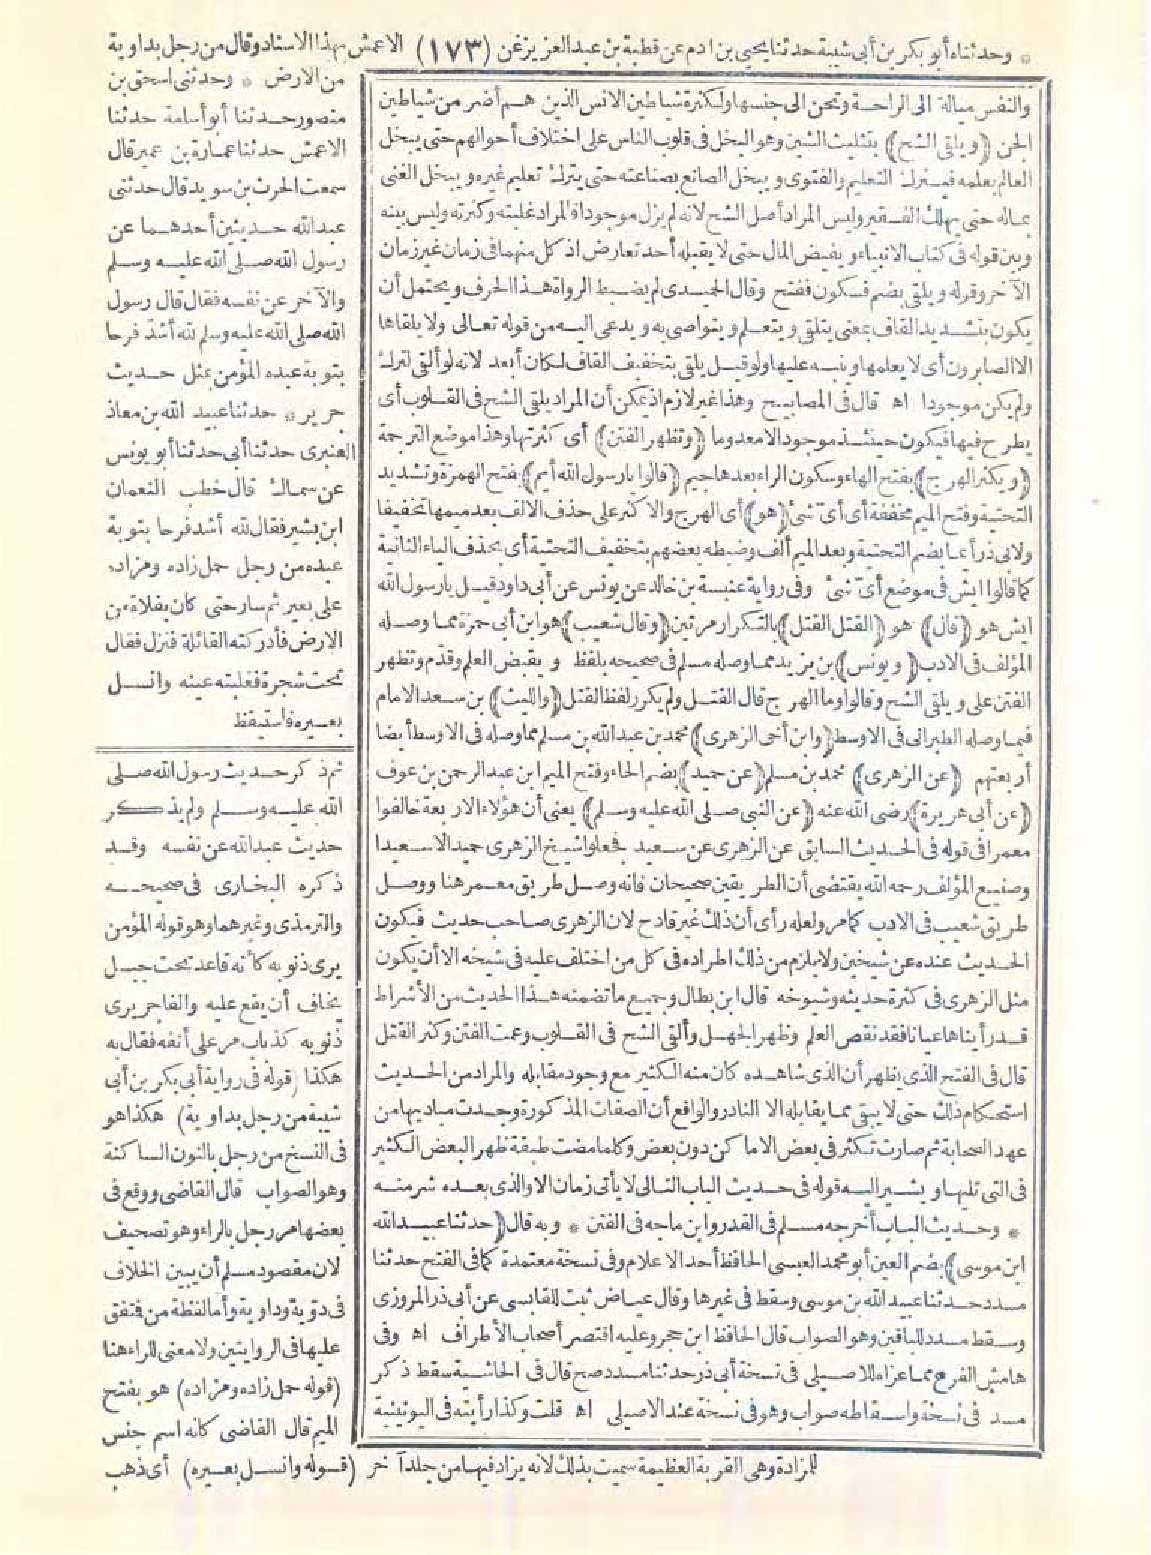 * وحدثناه أبو بكر بن أبى شيبة حدثنا يحيى بن ادم عن قطبة بن عبد العزيز عن (١٧٣) الاعمش بهذا الاسناد وقال من رجل بداوية
والنفس ميالة الى الراحة ونحن الى جنسها ولكثرة شياطين الانس الذين هم أضر من شياطين
الجن (ويلقى الشح) بتثليث الشين وهو البخل فى قلوب الناس على اختلاف أحوالهم حتى يبخل
العالم بعلمه فيترك التعليم والفتوى ويبخل الصانع بصناعته حتى يترك تعليم غيره ويبخل الغنى
بماله حتى يهلك الفقير وليس المراد أصل الشح لانه لم يزل موجودا فالمراد غلبته وكثرته وليس بينه
وبين قوله فى كتاب الانبياء ويفيض المال حتى لا يقبله أحد تعارض اذ كل منهما فى زمان غير زمان
الآخر وقوله ويلقى بضم فسكون ففتح وقال الحميدى لم يضبط الرواة هذا الحرف ويحتمل أن
يكون بتشديد القاف بمعنى يتلقى ويتعلم ويتواصى به ويدعى اليه من قوله تعالى ولا يلقاها
الا الصابرون أى لا يعلمها وينبه عليها ولو قيل يلقى بتخفيف القاف لكان أبعد لانه لو ألقى لترك
ولم يكن موجودا اه قال فى المصابيح وهذا غير لازم اذ يمكن أن المراد يلقى الشح فى القلوب أى
يطرح فيها فيكون حينئذ موجودا لا معدوما (وتظهر الفتن) أى كثرتها وهذا موضع الترجمة
(ويكثر الهرج) بفتح الهاء وسكون الراء بعدها جيم (قالوا يا رسول الله أيم) بفتح الهمزة وتشديد
التحتية وفتح الميم مخففة أى أى شئ (هو) أى الهرج والاكثر على حذف الالف بعد ميمها تخفيفا
ولابى ذر أيما بضم التحتية وبعد الميم ألف وضبطه بعضهم بتخفيف التحتية أى بحذف الياء الثانية
كما قالوا ايش فى موضع أى شئ وفى رواية عنبسة بن خالد عن يونس عن أبى داود قيل يا رسول الله
ايش هو (قال) هو (القتل القتل) بالتكرار مرتين (وقال شعيب) هو ابن أبى حمزة مما وصله
المؤلف فى الادب (ويونس) بن يزيد مما وصله مسلم فى صحيحه بلفظ ويقبض العلم وقدم وتظهر
الفتن على ويلقى الشح وقالوا وما الهرج قال القتل ولم يكرر لفظ القتل (والليث) بن سعد الامام
فيما وصله الطبرانى فى الاوسط (وابن أخى الزهرى) محمد بن عبد الله بن مسلم مما وصله فى الاوسط أيضا
أربعتهم (عن الزهرى) محمد بن مسلم (عن حميد) بضم الحاء وفتح الميم ابن عبد الرحمن بن عوف
(عن أبى هريرة) رضى الله عنه (عن النبى صلى الله عليه وسلم) يعنى أن هؤلاء الاربعة خالفوا
معمرا فى قوله فى الحديث السابق عن الزهرى عن سعيد فجعلوا شيخ الزهرى حميدا لا سعيدا
وصنيع المؤلف رحمه الله يقتضى أن الطريقين صحيحان فانه وصل طريق معمر هنا ووصل
طريق شعيب فى الادب كما مر ولعله رأى أن ذلك غير قادح لان الزهرى صاحب حديث فيكون
الحديث عنده عن شيخين ولا يلزم من ذلك اطراده فى كل من اختلف عليه فى شيخه الا أن يكون
مثل الزهرى فى كثرة حديثه وشيوخه قال ابن بطال وجميع ما تضمنه هذا الحديث من الأشراط
قد رأيناها عيانا فقد نقص العلم وظهر الجهل وألقى الشح فى القلوب وعمت الفتن وكثر القتل
قال فى الفتح الذى يظهر أن الذى شاهده كان منه الكثير مع وجود مقابله والمراد من الحديث
استحكام ذلك حتى لا يبقى مما يقابله الا النادر والواقع أن الصفات المذكورة وجدت مباديها من
عهد الصحابة ثم صارت تكثر فى بعض الاماكن دون بعض وكلما مضت طبقة ظهر البعض الكثير
فى التى تليها ويشير اليه قوله فى حديث الباب التالى لا يأتى زمان الا والذى بعده شر منه
* وحديث الباب أخرجه مسلم فى القدر وابن ماجه فى الفتن * وبه قال (حدثنا عبيد الله
ابن موسى) بضم العين أبو محمد العبسى الحافظ أحد الاعلام وفى نسخة معتمدة كما فى الفتح حدثنا
مسدد حدثنا عبيد الله بن موسى وسقط فى غيرها وقال عياض ثبت للقابسى عن أبى ذر المروزى
وسقط مسدد للباقين وهو الصواب قال الحافظ ابن حجر وعليه اقتصر أصحاب الأطراف اه وفى
هامش الفرع مما عزاه للاصيلى فى نسخة أبى ذر حدثنا مسدد صح قال فى الحاشية سقط ذكر
مسدد فى نسخة واسقاطه صواب وهو فى نسخة عند الاصيلى اه قلت وكذا رأيته فى اليونينية
من الارض * وحدثنى اسحق بن
منصور حدثنا أبو أسامة حدثنا
الاعمش حدثنا عمارة بن عمير قال
سمعت الحرث بن سويد قال حدثنى
عبد الله حديثين أحدهما عن
رسول الله صلى الله عليه وسلم
والآخر عن نفسه فقال قال رسول
الله صلى الله عليه وسلم لله أشد فرحا
بتوبة عبده المؤمن بمثل حديث
جرير * حدثنا عبيد الله بن معاذ
العنبرى حدثنا أبى حدثنا أبو يونس
عن سماك قال خطب النعمان
ابن بشير فقال لله أشد فرحا بتوبة
عبده من رجل حمل زاده ومزاده
على بعير ثم سار حتى كان بفلاة من
الارض فأدركته القائلة فنزل فقال
تحت شجرة فغلبته عينه وانسل
بعيره فاستيقظ
ثم ذكر حديث رسول الله صلى
الله عليه وسلم ولم يذكر
حديث عبد الله عن نفسه وقد
ذكره البخارى فى صحيحه
والترمذى وغيرهما وهو قوله المؤمن
يرى ذنوبه كأنه قاعد تحت جبل
يخاف أن يقع عليه والفاجر يرى
ذنوبه كذباب مر على أنفه فقال به
هكذا (قوله فى رواية أبى بكر بن أبى
شيبة من رجل بداوية) هكذا هو
فى النسخ من رجل بالنون الساكنة
وهو الصواب قال القاضى ووقع فى
بعضها مر رجل بالراء وهو تصحيف
لان مقصود مسلم أن يبين الخلاف
فى دوية وداوية وأما لفظة من فمتفق
عليها فى الروايتين ولا معنى للراء هنا
(قوله حمل زاده ومزاده) هو بفتح
الميم قال القاضى كانه اسم جنس
للمزادة وهى القربة العظيمة سميت بذلك لانه يزاد فيها من جلد آخر (قوله وانسل بعيره) أى ذهب